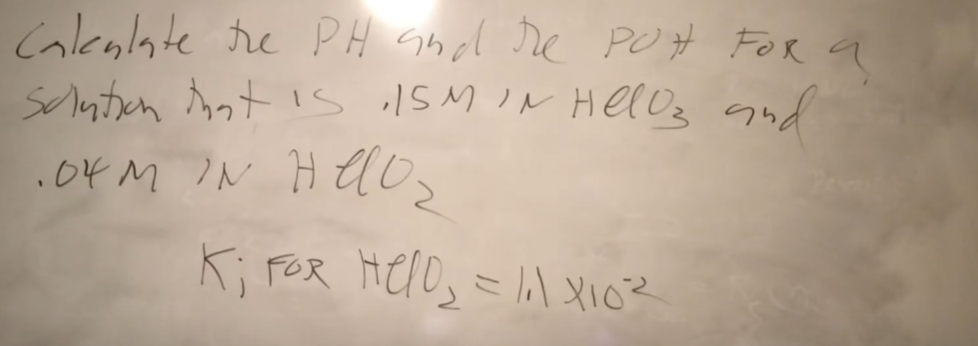 Calculate the PH and the POH FOR a
solution that is .15M IN HClO₃ and
.04M IN HClO₂
Ki FOR HClO₂ = 1.1 X10⁻²